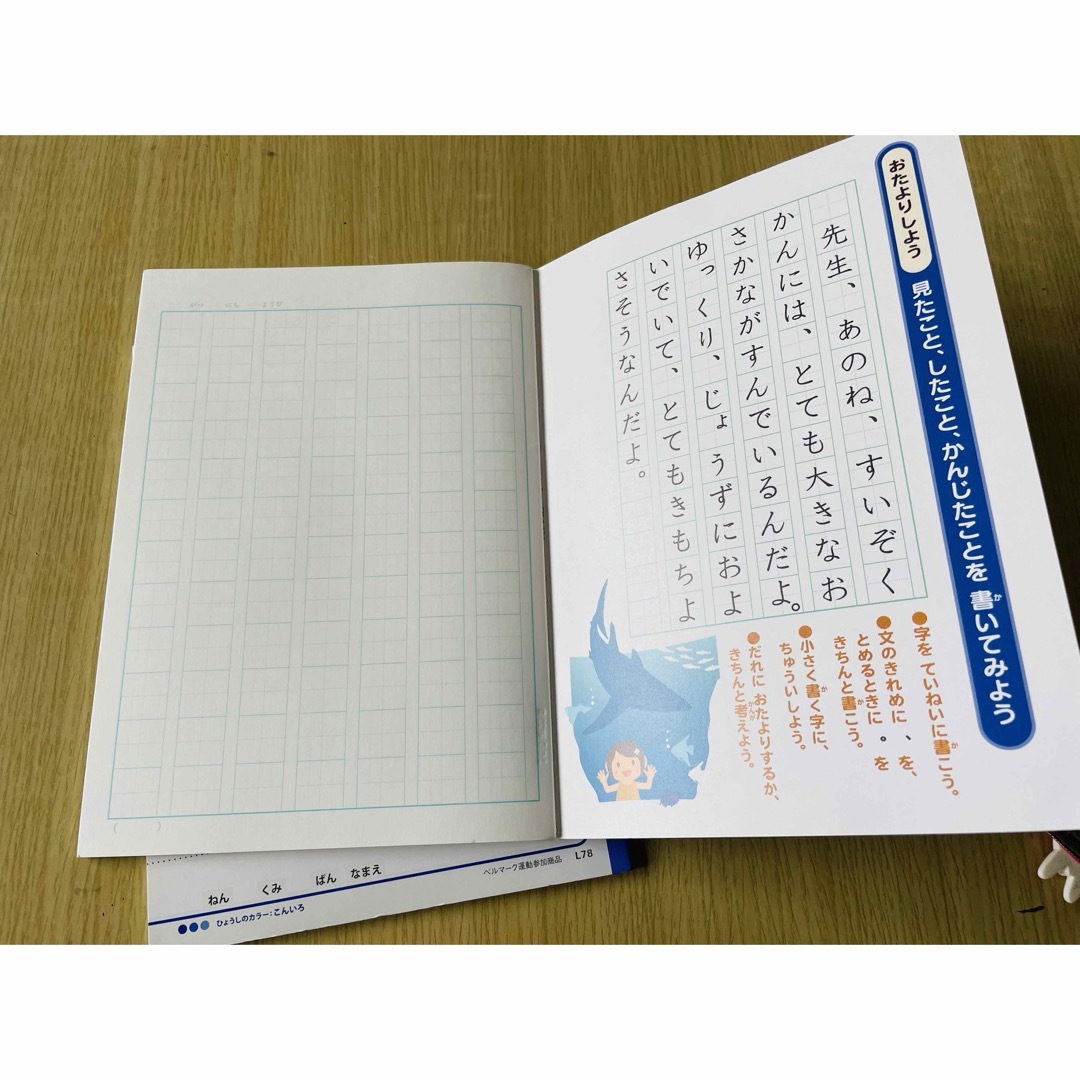 おたよりしよう
見たこと、したこと、かんじたことを 書いてみよう
か
先生、あのね、すいぞく
かんには、とても大きなお
さかながすんでいるんだよ。
ゆっくり、じょうずにおよ
いでいて、とてもきもちよ
さそうなんだよ。
●字を ていねいに書こう。
か
●文のきれめに 、 を、
とめるときに 。 を
きちんと書こう。
か
●小さく書く字に、
か
ちゅういしよう。
●だれに おたよりするか、
きちんと考えよう。
かんが
がつ にち ようび
ねん くみ ばん なまえ
ベルマーク運動参加商品 L78
ひょうしのカラー:こんいろ